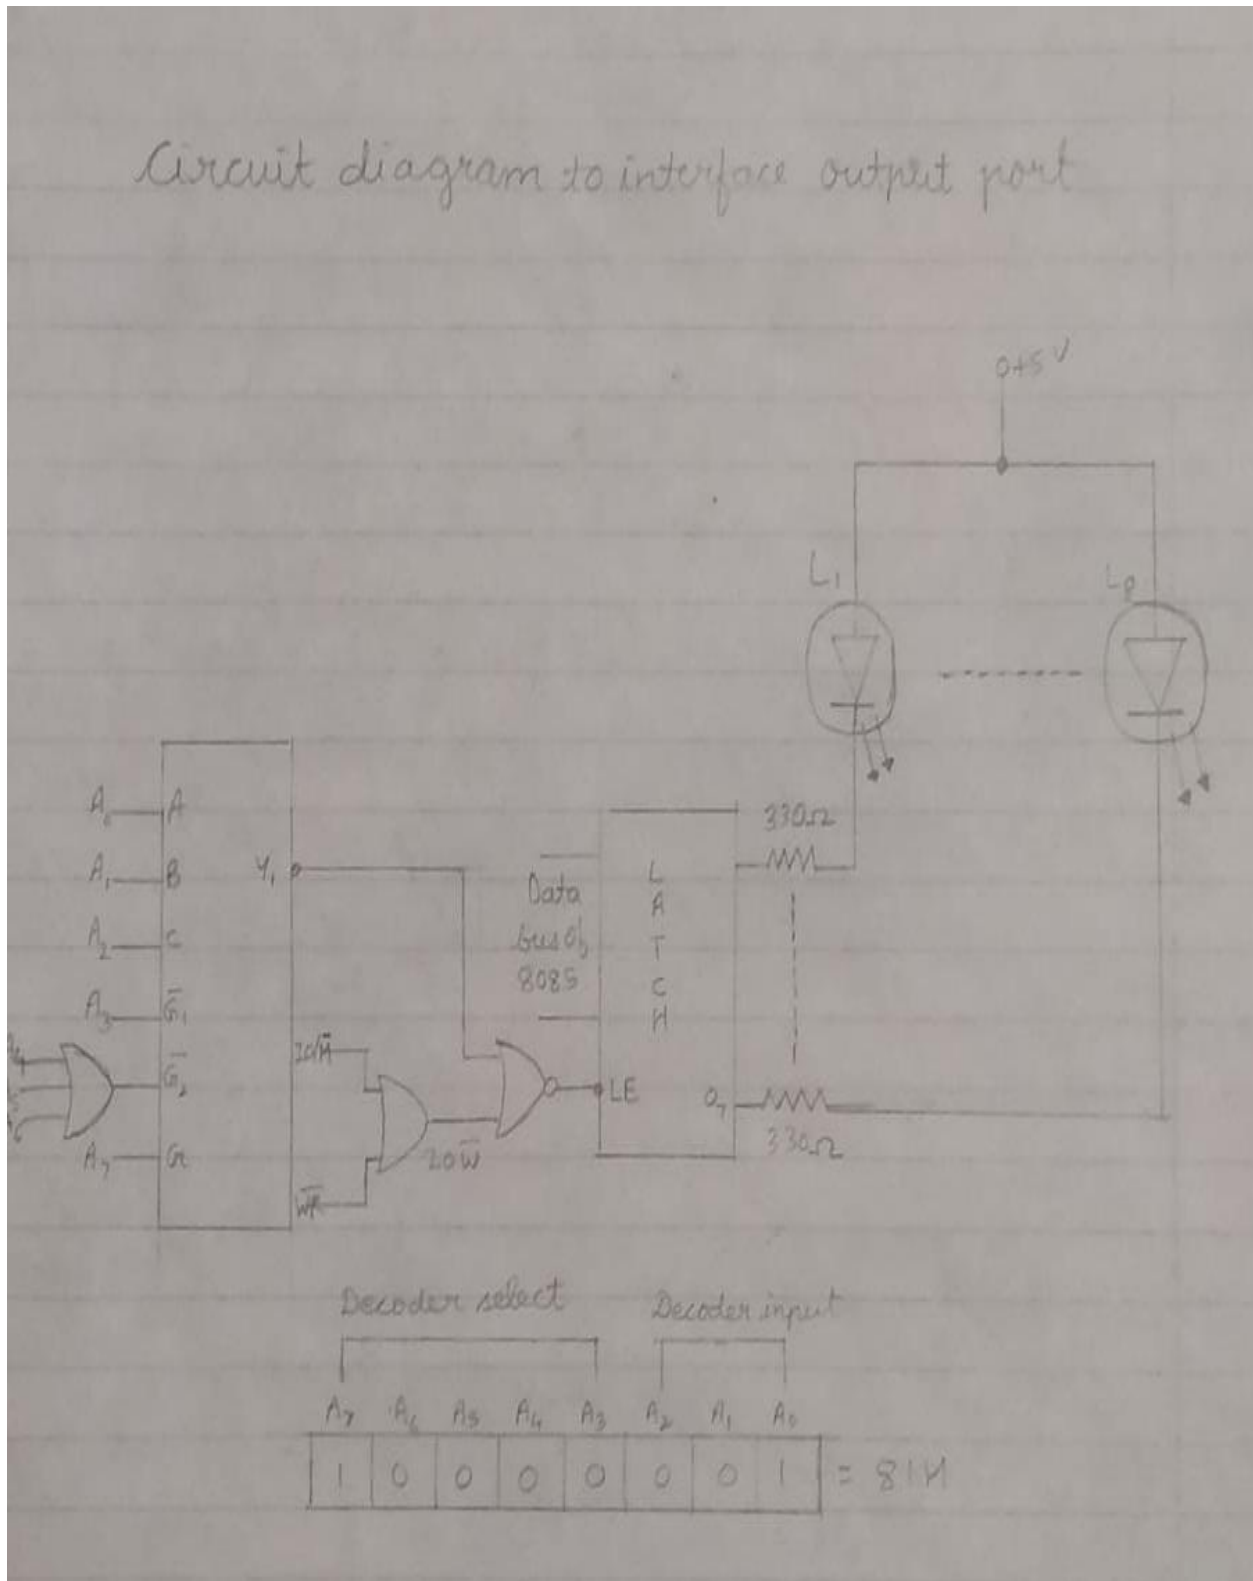 Circuit diagram to interface output port
0+5V
L₁
L₈
A₀ A
A₁ B
A₂ C
A₃ G̅₁
A₄
A₅
A₆
G̅₂
A₇ G
Y₁
IO/M̅
W̅R̅
IOW̅
Data
bus of
8085
LATCH
LE
O₇
330Ω
330Ω
Decoder select Decoder input
A₇ A₆ A₅ A₄ A₃ A₂ A₁ A₀
1 0 0 0 0 0 0 1 = 81H